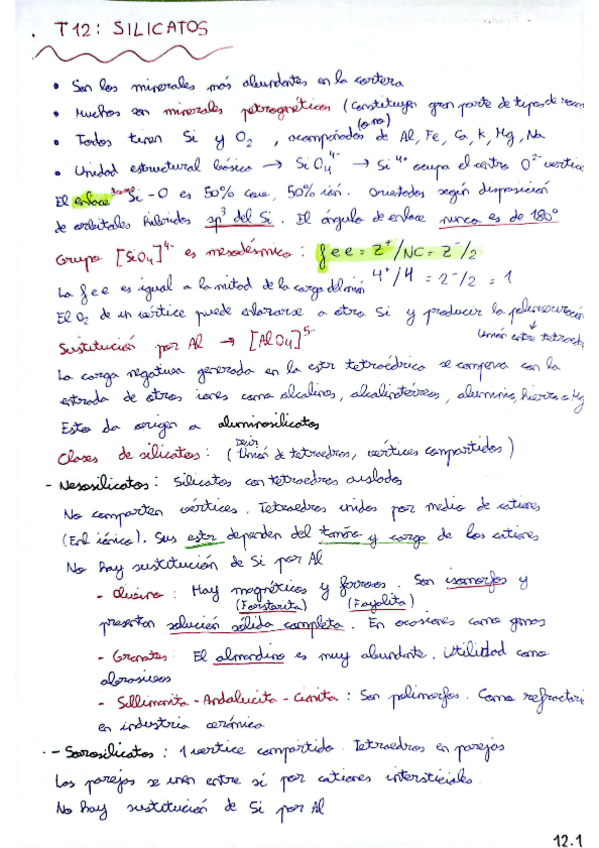 T12: SILICATOS
• Son los minerales más abundantes en la corteza
• Muchos son minerales petrogenéticos (Constituyen gran parte de tipos de rocas
• Todos tienen Si y O2, acompañados de Al, Fe, Ca, K, Mg, Na
• Unidad estructural básica → SiO4^4- → Si^4+ ocupa el centro O^2- vertice
El enlace Si-O es 50% cova, 50% ión. Orientados según disposición
de orbitales híbridos sp³ del Si. El ángulo de enlace nunca es de 180°
Grupo [SiO4]^4- es mesodésmico: fee = Z+/NC = Z-/2
La fee es igual a la mitad de la carga del anión 4+/4 = 2-/2 = 1
El O2 de un vértice puede enlazarse a otro Si y producir la polimerización
↓
Unión entre tetraed
Sustitución por Al → [AlO4]^5-
La carga negativa generada en la estr tetraédrica se compensa con la
entrada de otros iones como alcalinos, alcalinotérreos, aluminio, hierro o Mg
Esto da origen a aluminosilicatos
Clases de silicatos: (Unión de tetraedros, vértices compartidos)
- Nesosilicatos: Silicatos con tetraedros aislados
No comparten vértices. Tetraedros unidos por medio de cationes
(Enl iónico). Sus estr dependen del tamaño y carga de los cationes
No hay sustitución de Si por Al
- Olivino: Hay magnéticos y ferrosos. Son isomorfos y
(Forstarita) (Fayalita)
presentan solución sólida completa. En ocasiones como gemas
- Granates: El almandino es muy abundante. Utilidad como
abrasivos
- Sillimanita - Andalucita - Cianita: Son polimorfos. Como refractari
en industria cerámica
- Sorosilicatos: 1 vertice compartido. Tetraedros en parejas
Las parejas se unen entre sí por cationes intersticiales
No hay sustitución de Si por Al
12.1